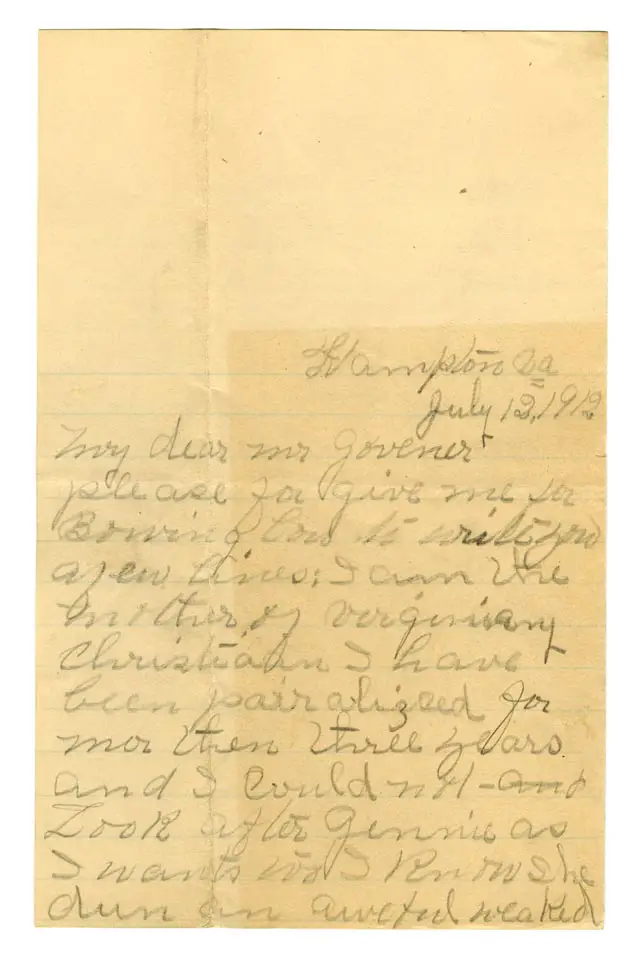 Hampton Va
July 12, 1912
My dear mr Govener
please for give me for
Bowing low to write you
a few lines: I am the
mother of Verginiany
Christian I have
been pairalized for
mor then three years
and I could not - and
Look after Gennie as
I wants too I know she
dun an aweful weaked